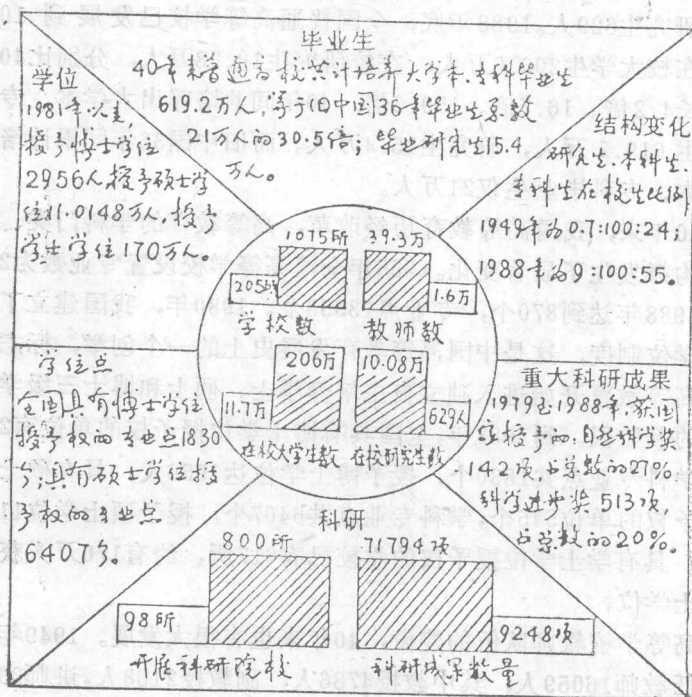 毕业生
40年来普通高校共计培养大学本、专科毕业生
619.2万人，等于旧中国36年毕业生总数
21万人的30.5倍；毕业研究生15.4
万人。
学位
1981年以来
授予博士学位
2956人，授予硕士学
位11.0148万人，授予
学士学位170万人。
结构变化
研究生、本科生、
专科生在校生比例
1949年为0.7:100:24；
1988年为9:100:55。
1075所
205所
学校数
39.3万
1.6万
教师数
206万
11.7万
在校大学生数
10.08万
629人
在校研究生数
学位点
全国具有博士学位
授予权的专业点1830
个，具有硕士学位授
予权的专业点
6407个。
重大科研成果
1979至1988年，我国
被授予的自然科学奖
142项，占总数的27%。
科学进步奖513项，
占总数的20%。
科研
800所
98所
开展科研院校
71794项
9248项
科研成果数量